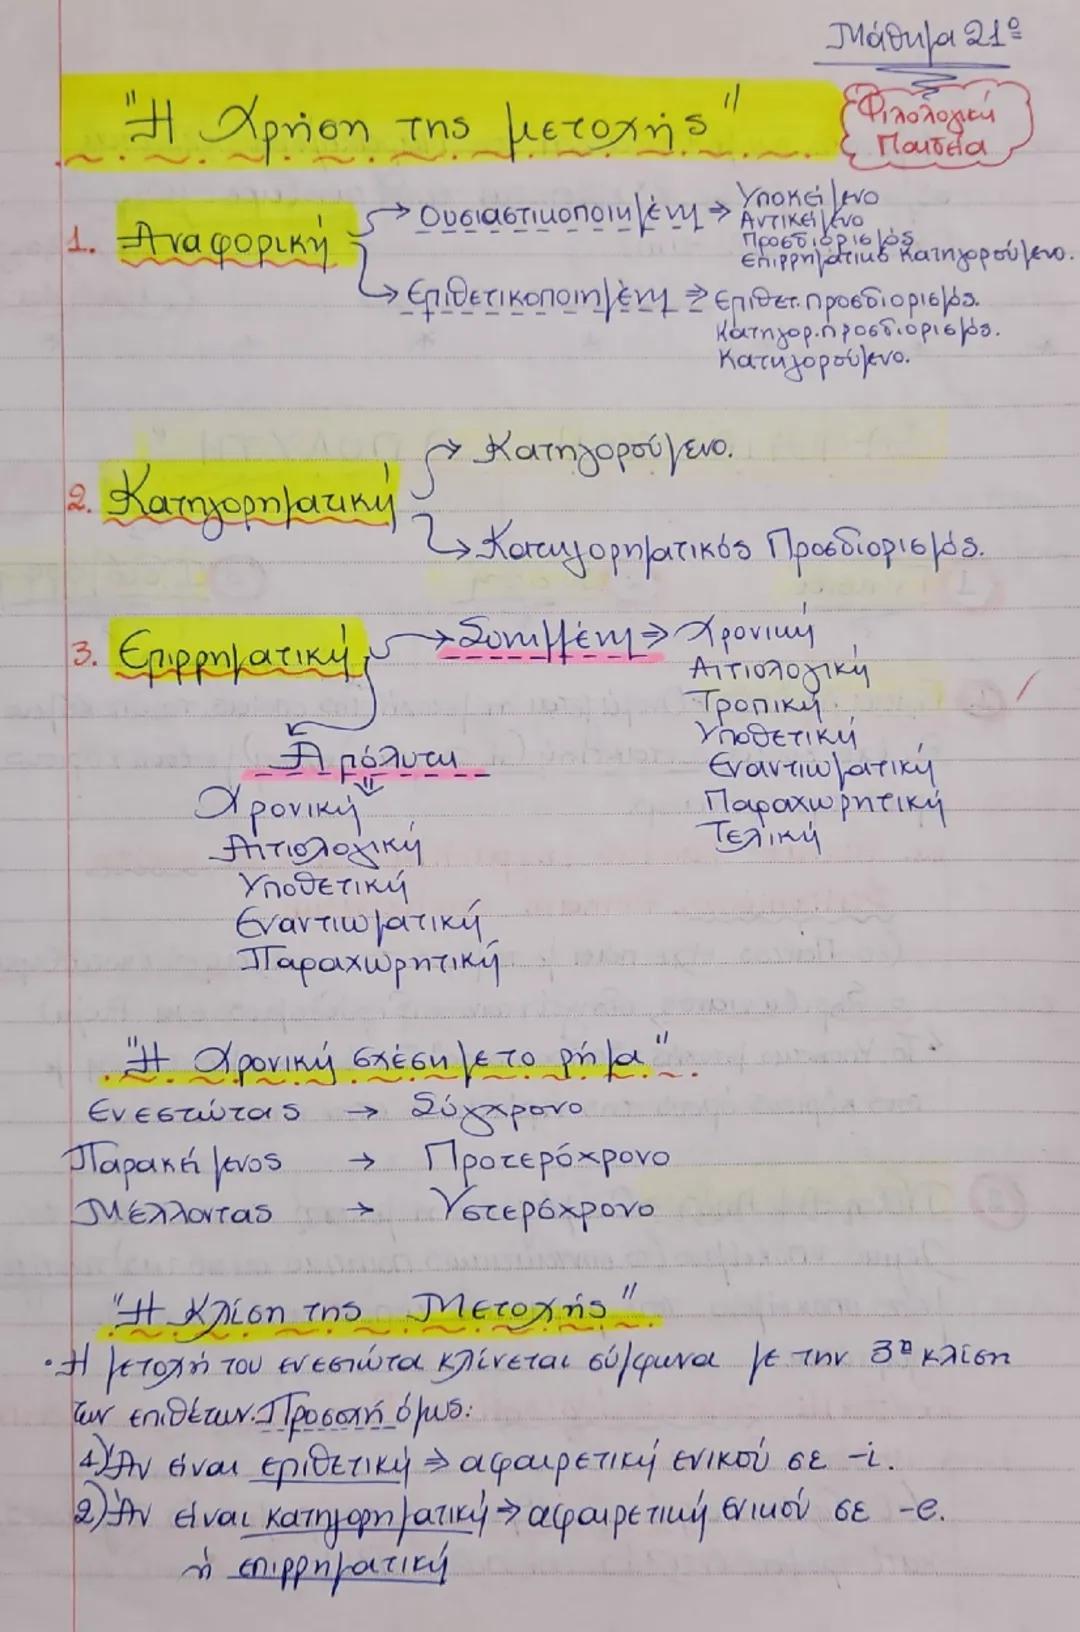 Μάθημα 21º
Φιλολογική
Παιδεία
"Η Χρήση της μετοχής"
1. Αναφορική → Ουσιαστικοποιημένη ⇒ Υποκείμενο
Αντικείμενο
Προσδιορισμός
Επιρρηματικό Κατηγορούμενο.
→ Επιθετικοποιημένη ⇒ Επιθετ. προσδιορισμός.
Κατηγορ. προσδιορισμός.
Κατηγορούμενο.
2. Κατηγορηματική → Κατηγορούμενο.
→ Κατηγορηματικός Προσδιορισμός.
3. Επιρρηματική → Συνημμένη ⇒ Χρονική
Αιτιολογική
Τροπική
Υποθετική
Εναντιωματική
Παραχωρητική
Τελική
Απόλυτη
Χρονική
Αιτιολογική
Υποθετική
Εναντιωματική
Παραχωρητική
"Η Χρονική σχέση με το ρήμα".
Ενεστώτας → Σύγχρονο
Παρακείμενος → Προτερόχρονο
Μέλλοντας → Υστερόχρονο
"Η Κλίση της Μετοχής"
• Η μετοχή του ενεστώτα κλίνεται σύμφωνα με την 3η κλίση
των επιθέτων. Προσοχή όμως:
1) Αν είναι επιθετική ⇒ αφαιρετική ενικού σε -i.
2) Αν είναι κατηγορηματική ⇒ αφαιρετική ενικού σε -e.
ή επιρρηματική